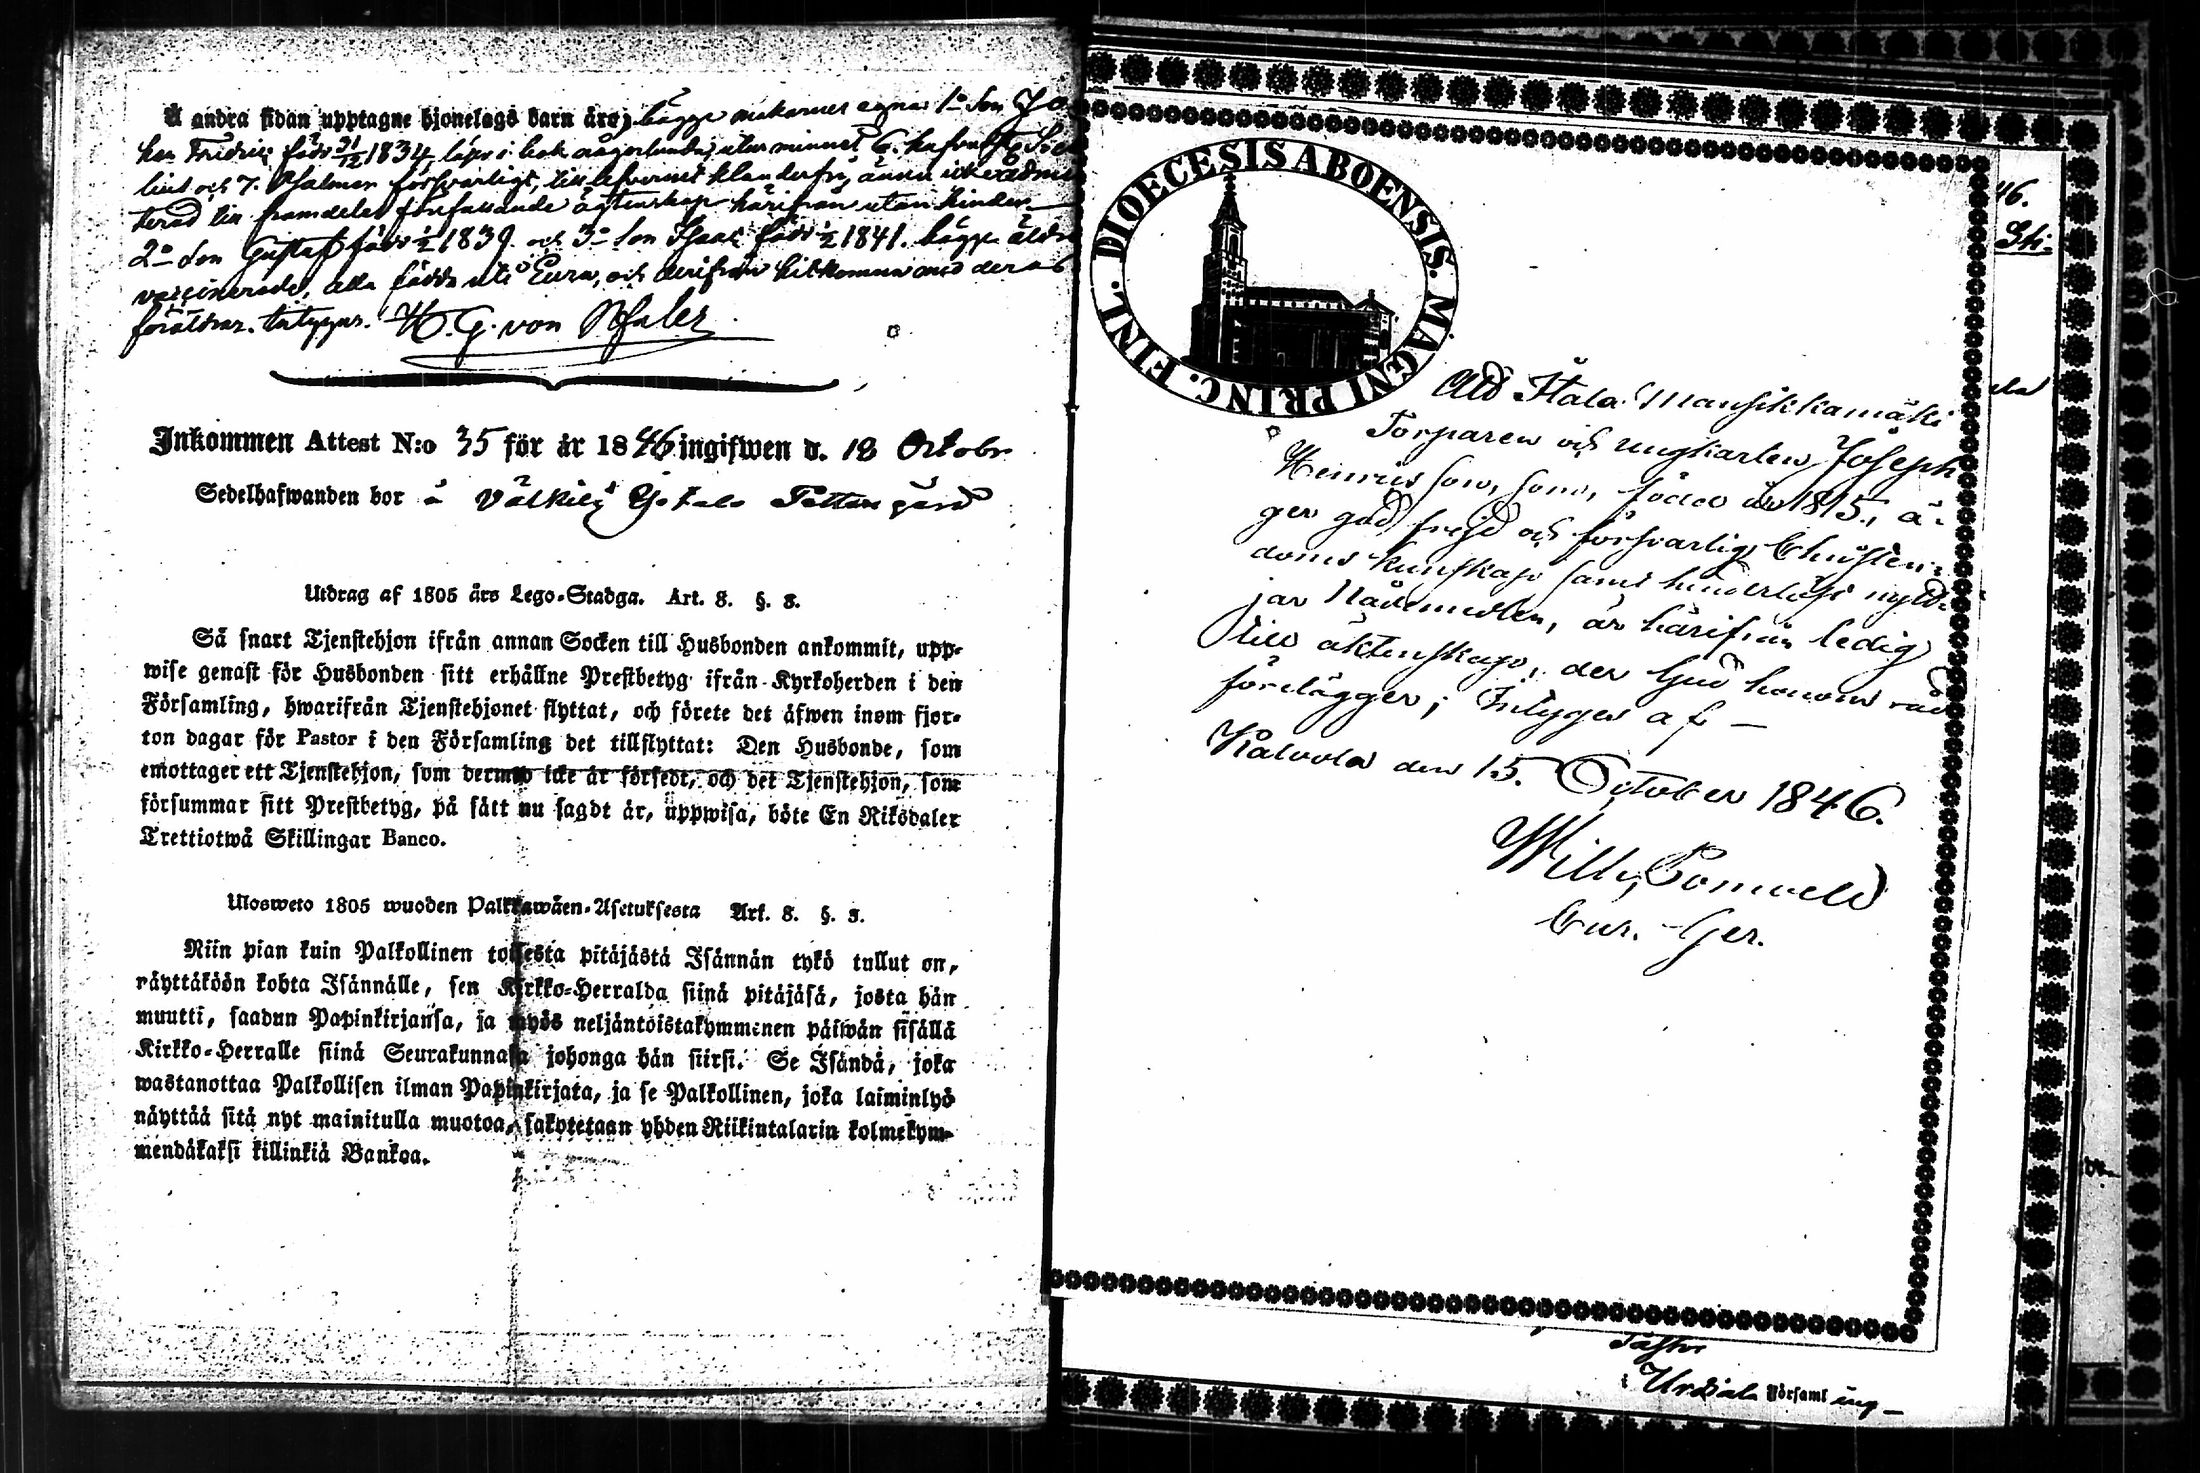 Å andra sidan upptagne hjonelags barn äro, bägge makarnes egna 1o Son Jo
han Fridric född 21/12 1834, läser i bok någorlunda, utur minnet
och 7. Psalmer försvarligt, till lefvernet klanderfri, ännu icke admit
terad till framdeles författande ägtenskap härifrån utan hinder.
2o Son Gustaf född 1839 och 3o Son Isaac född 1841. bägge äldre
vaccinerade, alla födda uti Eura, och derifrån hitkomna med deras
föräldrar. Intygar. H. G. von Pfaler
Inkommen Attest N:o 35 för år 1846 ingifwen d. 18 Octobr
Sedelhafwanden bor å Välkilä Yjokala Pottangård
Utdrag af 1805 års Lego-Stadga. Art. 8. §. 3.
Så snart Tjenstehjon ifrån annan Socken till Husbonden ankommit, upp-
wise genast för Husbonden sitt erhållne Prestbetyg ifrån Kyrkoherden i den
Församling, hwarifrån Tjenstehjonet flyttat, och förete det äfwen inom fjor-
ton dagar för Pastor i den Församling det tillflyttat: Den Husbonde, som
emottager ett Tjenstehjon, som dermed icke är försedt, och det Tjenstehjon, som
försummar sitt Prestbetyg, på sätt nu sagdt är, uppwisa, böte En Riksdaler
Trettiotwå Skillingar Banco.
Ulosweto 1805 wuoden Palkkawäen-Asetuksesta Art. 8. §. 3.
Niin pian kuin Palkollinen toisesta pitäjästä Isännän tykö tullut on,
näyttäköön kohta Isännälle, sen Kirkko-Herralda siinä pitäjäsä, josta hän
muutti, saadun Papinkirjansa, ja myös neljäntoistakymmenen päiwän sisällä
Kirkko-Herralle siinä Seurakunnasa johonga hän siirsi. Se Isändä, joka
wastanottaa Palkollisen ilman Papinkirjata, ja se Palkollinen, joka laiminlyö
näyttää sitä nyt mainitulla muotoa, sakotetaan yhden Riikintalarin kolmekym-
mendäkaksi killinkiä Bankoa.
DIOECESIS ABOENSIS. MAGNI PRINC. FINL.
Att Itala Mansikkamäki
Torparen och ungkarlen Joseph
Henricsson, som, född år 1815, ä-
ger god frejd och försvarlig Christen-
doms kunskap samt hinderlöst nytt-
jar Nådemedlen, är härifrån ledig
till äktenskap, der Gud honom råd
förelägger; Intygas af —
Kalvola den 15. October 1846.
Wilh. Pomoeld
Cur. Ger.
46.
Pastor
i Urdiala Församling —